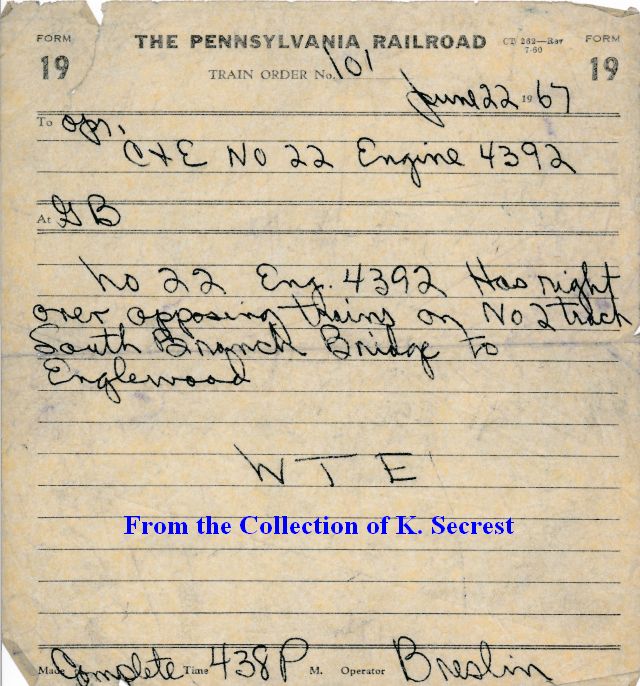 FORM THE PENNSYLVANIA RAILROAD CT 262—Rev FORM
19 7-60 19
TRAIN ORDER No. 101
June 22 1967
To opr.
C&E No 22 Engine 4392
At GB
No 22 Eng. 4392 Has right
over opposing trains on No 2 track
South Branch Bridge to
Englewood
W T E
From the Collection of K. Secrest
Made Complete Time 438 P M. Operator Breslin